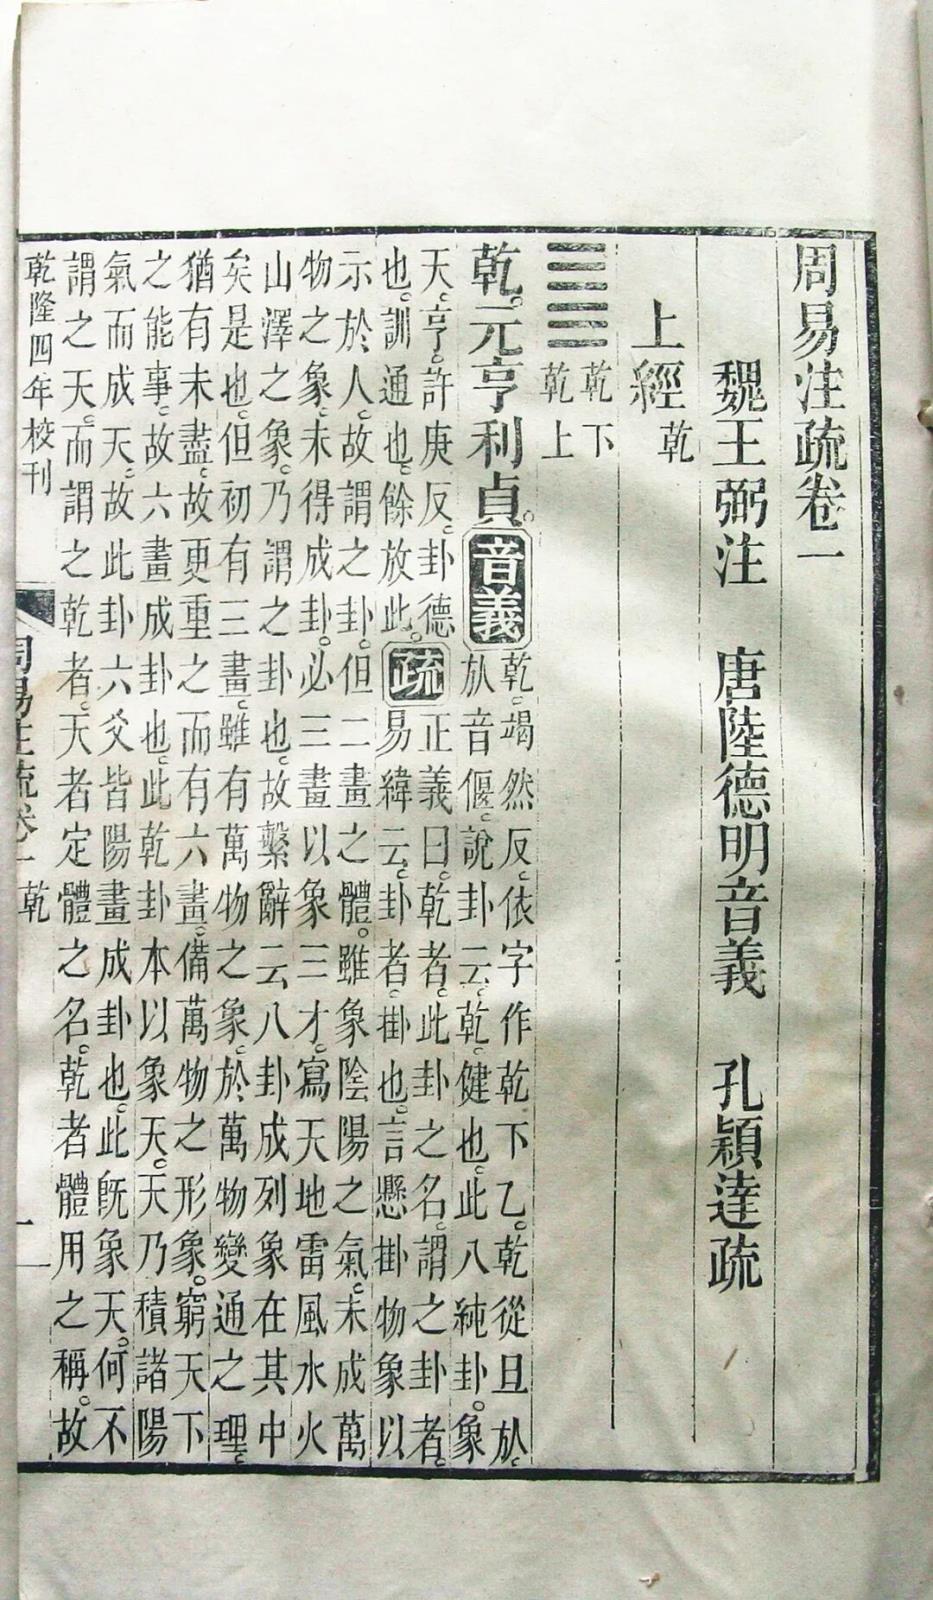 周易注疏卷一
魏王弼注　唐陸德明音義　孔穎達疏
上經 乾
乾下
乾上
乾。元亨利貞。音義
乾。竭然反。依字作乾下乙。乾從旦㫃。
㫃音偃。說卦云。乾。健也。此八純卦。象
天。亨。許庚反。卦德
也。訓通也。餘放此。
疏
正義曰。乾者。此卦之名。謂之卦者。
易緯云。卦者。掛也。言懸掛物象以
示於人。故謂之卦。但二畫之體。雖象陰陽之氣。未成萬
物之象。未得成卦。必三畫以象三才。寫天地雷風水火
山澤之象。乃謂之卦也。故繫辭云八卦成列象在其中
矣是也。但初有三畫。雖有萬物之象。於萬物變通之理。
猶有未盡。故更重之而有六畫。備萬物之形象。窮天下
之能事。故六畫成卦也。此乾卦本以象天。天乃積諸陽
氣而成天。故此卦六爻皆陽畫成卦也。此既象天。何不
謂之天。而謂之乾者。天者定體之名。乾者體用之稱。故
乾隆四年校刊　周易注疏卷一 乾　一